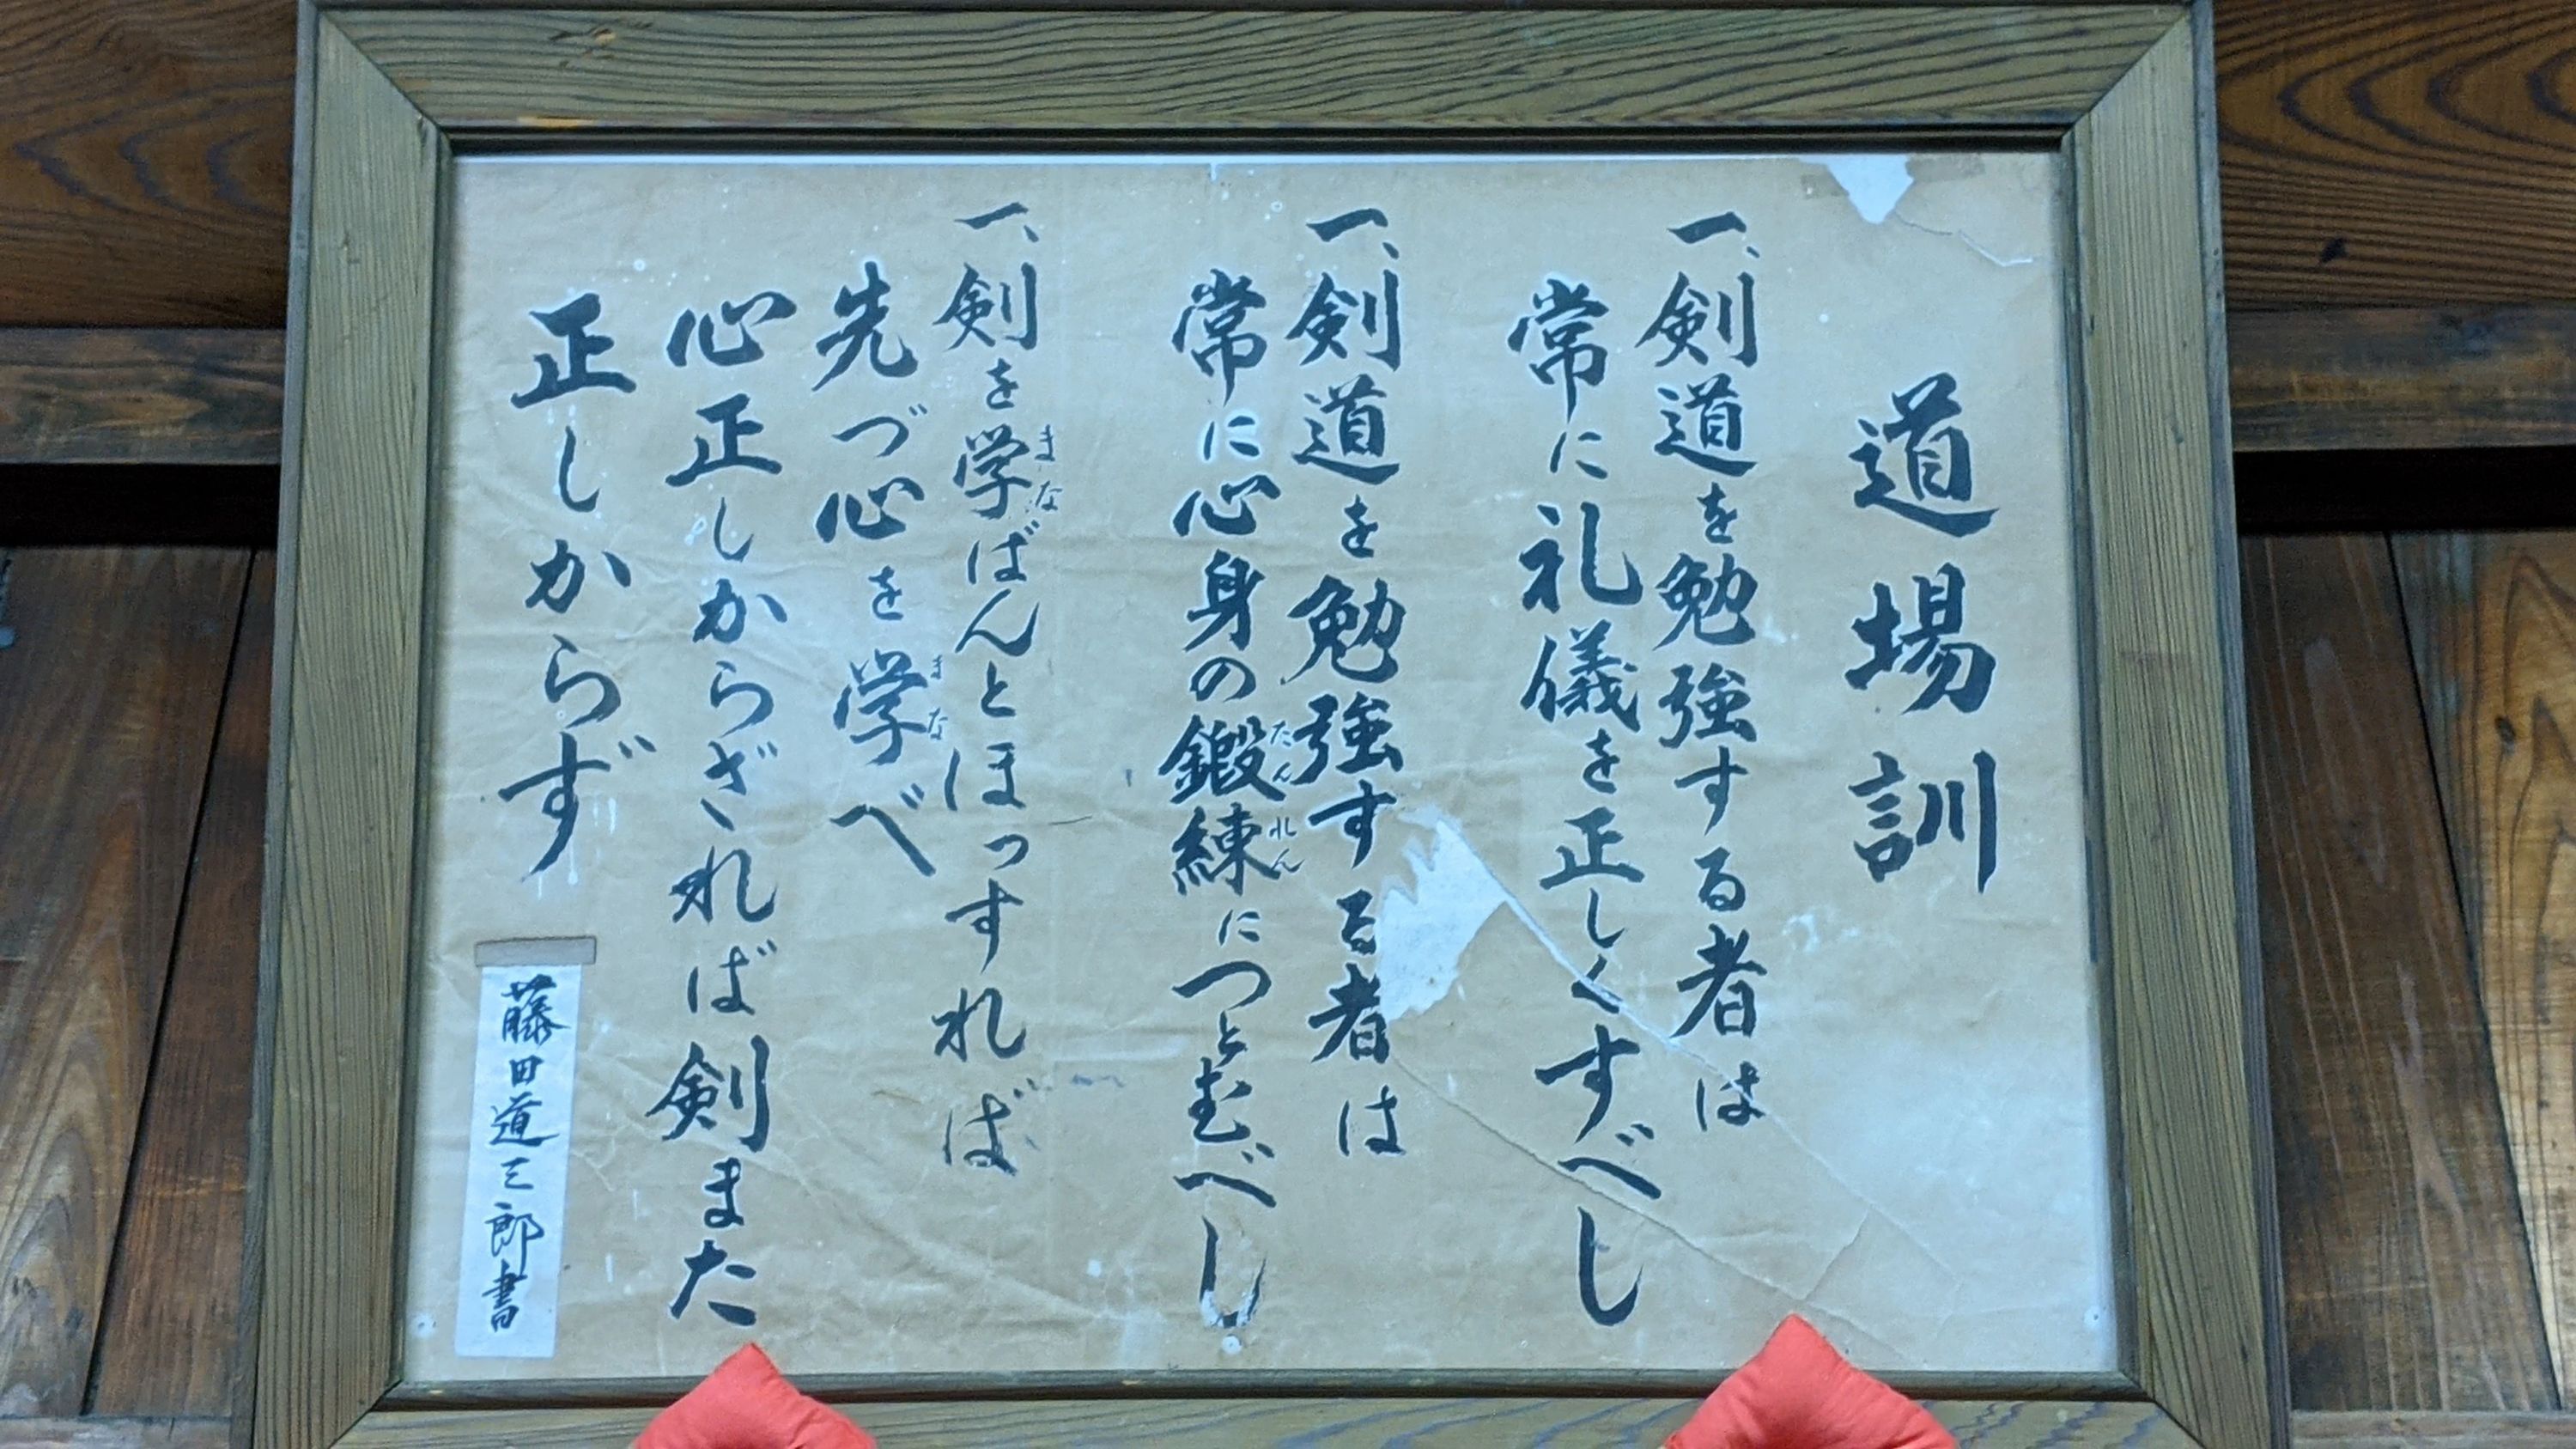 道場訓
一、剣道を勉強する者は
常に礼儀を正しくすべし
一、剣道を勉強する者は
常に心身の鍛練につとむべし
たんれん
一、剣を学ばんとほっすれば
まな
先づ心を学べ
まな
心正しからざれば剣また
正しからず
藤田道三郎書